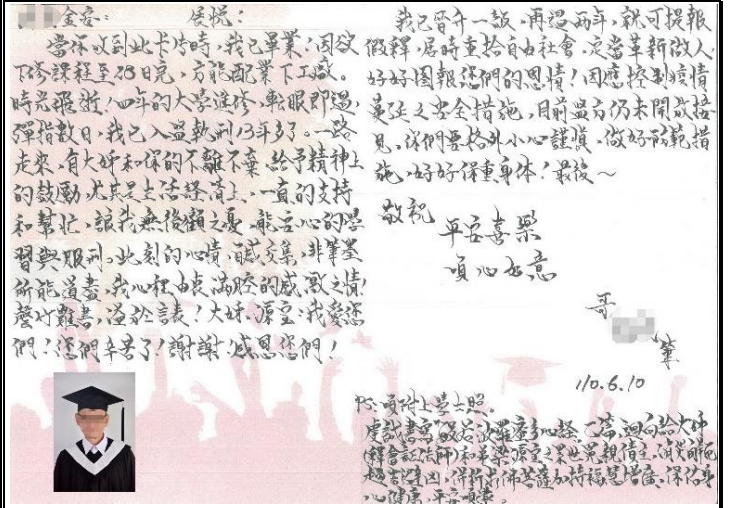 金容: 展悅:
當你收到此卡片時,我已畢業,因欲
下修課程至28日完,方能配業下工廠。
時光飛逝!四年的大學進修,轉眼即過,
彈指數日,我已入監執刑13年多了。一路
走來,有大姊和你的不離不棄,給予精神上
的鼓勵,尤其是生活經濟上、一直的支持
和幫忙,讓我無後顧之憂,能安心的學
習與服刑。此刻的心情,百感交集,非筆墨
所能道盡,我心裡由衷滿腔的感激之情!
罄竹難書,溢於言表!大姊、源宝:我愛您
們!您們辛苦了!謝謝!感恩您們!
我已晉升一級,再過兩年,就可提報
假釋,屆時重拾自由社會,定當革新做人,
好好圖報您們的恩情!因應控制疫情
蔓延之安全措施,目前監方仍未開放接
見,你們要格外小心謹慎,做好防範措
施,好好保重身体!最後~
敬祝
平安喜樂
順心如意
哥
筆
110.6.10
PS:須附上學士照。
虔誠書寫「般若波羅蜜多心經」乙篇,迴向給大姊
(釋 法師)和 源宝之累世冤親債主,
超 ,佛菩薩加持福慧增長,保佑身
心健康,平安順遂。